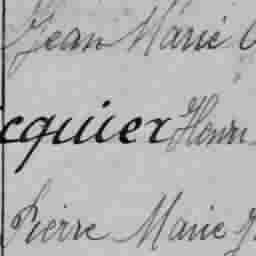 Jean Marie
cquier Henri
Pierre Marie